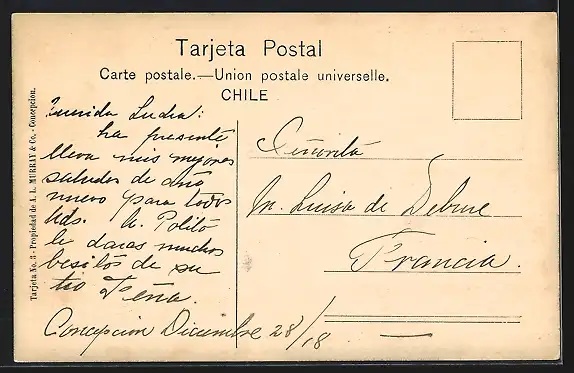 Tarjeta Postal
Carte postale.—Union postale universelle.
CHILE
Tarjeta No. 3 - Propiedad de A. L. MURRAY & Co. - Concepcion.
Querida
ha presente
lleva mis mejores
saludos de año
nuevo para todos
Uds. A Polito
le daras muchos
besitos de su
tio Peña.
Concepcion Diciembre 28/18
Señorita
M. Luisa de
Francia.